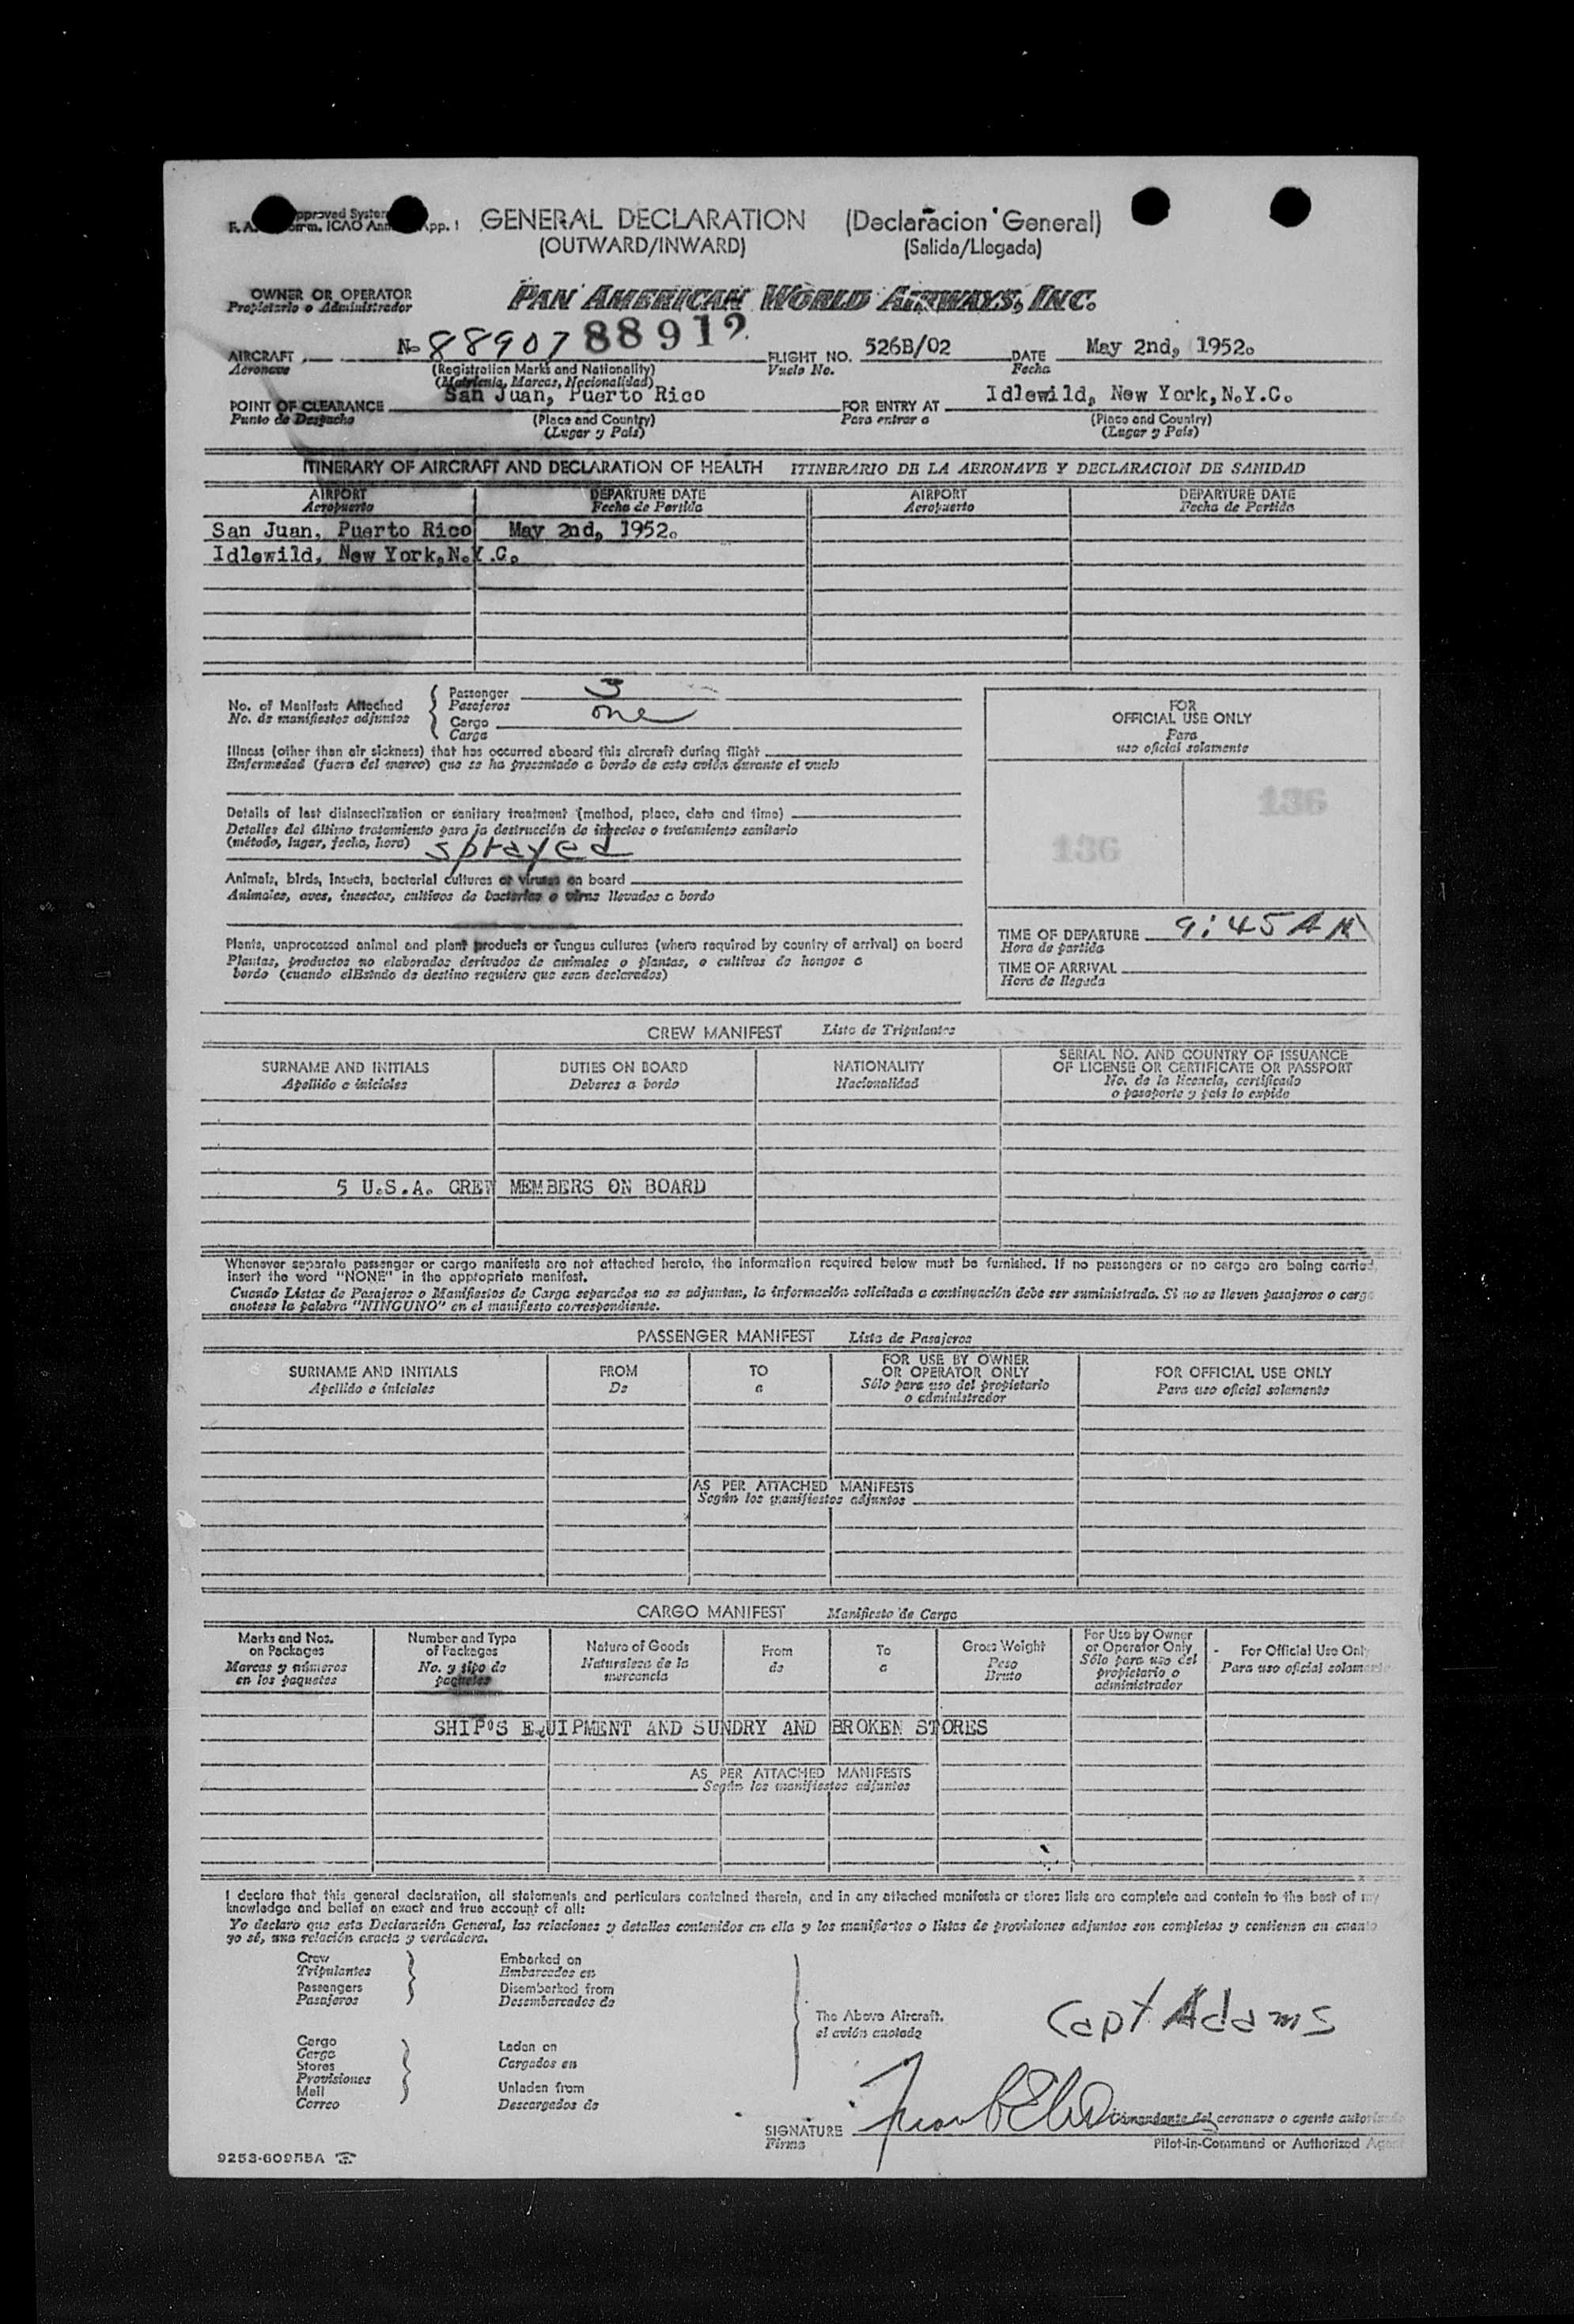 GENERAL DECLARATION (Declaracion General)
(OUTWARD/INWARD) (Salida/Llegada)
OWNER OR OPERATOR PAN AMERICAN WORLD AIRWAYS, INC.
Propietario o Administrador
No 88907 88912
AIRCRAFT FLIGHT NO. 526B/02 DATE May 2nd, 1952.
Aeronave (Registration Marks and Nationality) Vuelo No. Fecha
(Matricula, Marcas, Nacionalidad)
POINT OF CLEARANCE San Juan, Puerto Rico FOR ENTRY AT Idlewild, New York, N.Y.C.
Punto de Despacho (Place and Country) Para entrar a (Place and Country)
(Lugar y País) (Lugar y País)
ITINERARY OF AIRCRAFT AND DECLARATION OF HEALTH ITINERARIO DE LA AERONAVE Y DECLARACION DE SANIDAD
AIRPORT DEPARTURE DATE AIRPORT DEPARTURE DATE
Aeropuerto Fecha de Partida Aeropuerto Fecha de Partida
San Juan, Puerto Rico May 2nd, 1952.
Idlewild, New York, N.Y.C.
No. of Manifests Attached Passenger 3
No. de manifiestos adjuntos Pasajeros
Cargo one
Carga
Illness (other than air sickness) that has occurred aboard this aircraft during flight
Enfermedad (fuera del mareo) que se ha presentado a bordo de este avión durante el vuelo
Details of last disinsectization or sanitary treatment (method, place, date and time)
Detalles del último tratamiento para la destrucción de insectos o tratamiento sanitario
(método, lugar, fecha, hora) sprayed
Animals, birds, insects, bacterial cultures or viruses on board
Animales, aves, insectos, cultivos de bacterias o virus llevados a bordo
Plants, unprocessed animal and plant products or fungus cultures (where required by country of arrival) on board
Plantas, productos no elaborados derivados de animales o plantas, o cultivos de hongos a
bordo (cuando elEstado de destino requiere que sean declarados)
FOR
OFFICIAL USE ONLY
Para
uso oficial solamente
136
136
TIME OF DEPARTURE 9:45 AM
Hora de partida
TIME OF ARRIVAL
Hora de llegada
CREW MANIFEST Lista de Tripulantes
SURNAME AND INITIALS DUTIES ON BOARD NATIONALITY SERIAL NO. AND COUNTRY OF ISSUANCE
Apellido e iniciales Deberes a bordo Nacionalidad OF LICENSE OR CERTIFICATE OR PASSPORT
No. de la licencia, certificado
o pasaporte y país lo expide
5 U.S.A. CREW MEMBERS ON BOARD
Whenever separate passenger or cargo manifests are not attached hereto, the information required below must be furnished. If no passengers or no cargo are being carried,
insert the word "NONE" in the appropriate manifest.
Cuando Listas de Pasajeros o Manifiestos de Carga separados no se adjuntan, la información solicitada a continuación debe ser suministrada. Si no se lleven pasajeros o carga
anotese la palabra "NINGUNO" en el manifiesto correspondiente.
PASSENGER MANIFEST Lista de Pasajeros
SURNAME AND INITIALS FROM TO FOR USE BY OWNER FOR OFFICIAL USE ONLY
Apellido e iniciales De a OR OPERATOR ONLY Para uso oficial solamente
Sólo para uso del propietario
o administrador
AS PER ATTACHED MANIFESTS
Según los manifiestos adjuntos
CARGO MANIFEST Manifiesto de Carga
Marks and Nos. Number and Type Nature of Goods From To Gross Weight For Use by Owner For Official Use Only
on Packages of Packages Naturaleza de la de a Peso or Operator Only Para uso oficial solamente
Marcas y números No. y tipo de mercancía Bruto Sólo para uso del
en los paquetes paquetes propietario o
administrador
SHIP'S EQUIPMENT AND SUNDRY AND BROKEN STORES
AS PER ATTACHED MANIFESTS
Según los manifiestos adjuntos
I declare that this general declaration, all statements and particulars contained therein, and in any attached manifests or stores lists are complete and contain to the best of my
knowledge and belief an exact and true account of all:
Yo declaro que esta Declaración General, las relaciones y detalles contenidos en ella y los manifiestos o listas de provisiones adjuntos son completos y contienen en cuanto
yo sé, una relación exacta y verdadera.
Crew Embarked on
Tripulantes Embarcados en
Passengers Disembarked from
Pasajeros Desembarcados de
The Above Aircraft.
el avión anotado
Capt Adams
Cargo Laden on
Carga Cargados en
Stores
Provisiones
Mail Unladen from
Correo Descargados de
SIGNATURE Comandante del aeronave o agente autorizado
Firma Pilot-in-Command or Authorized Agent
9253-60955A